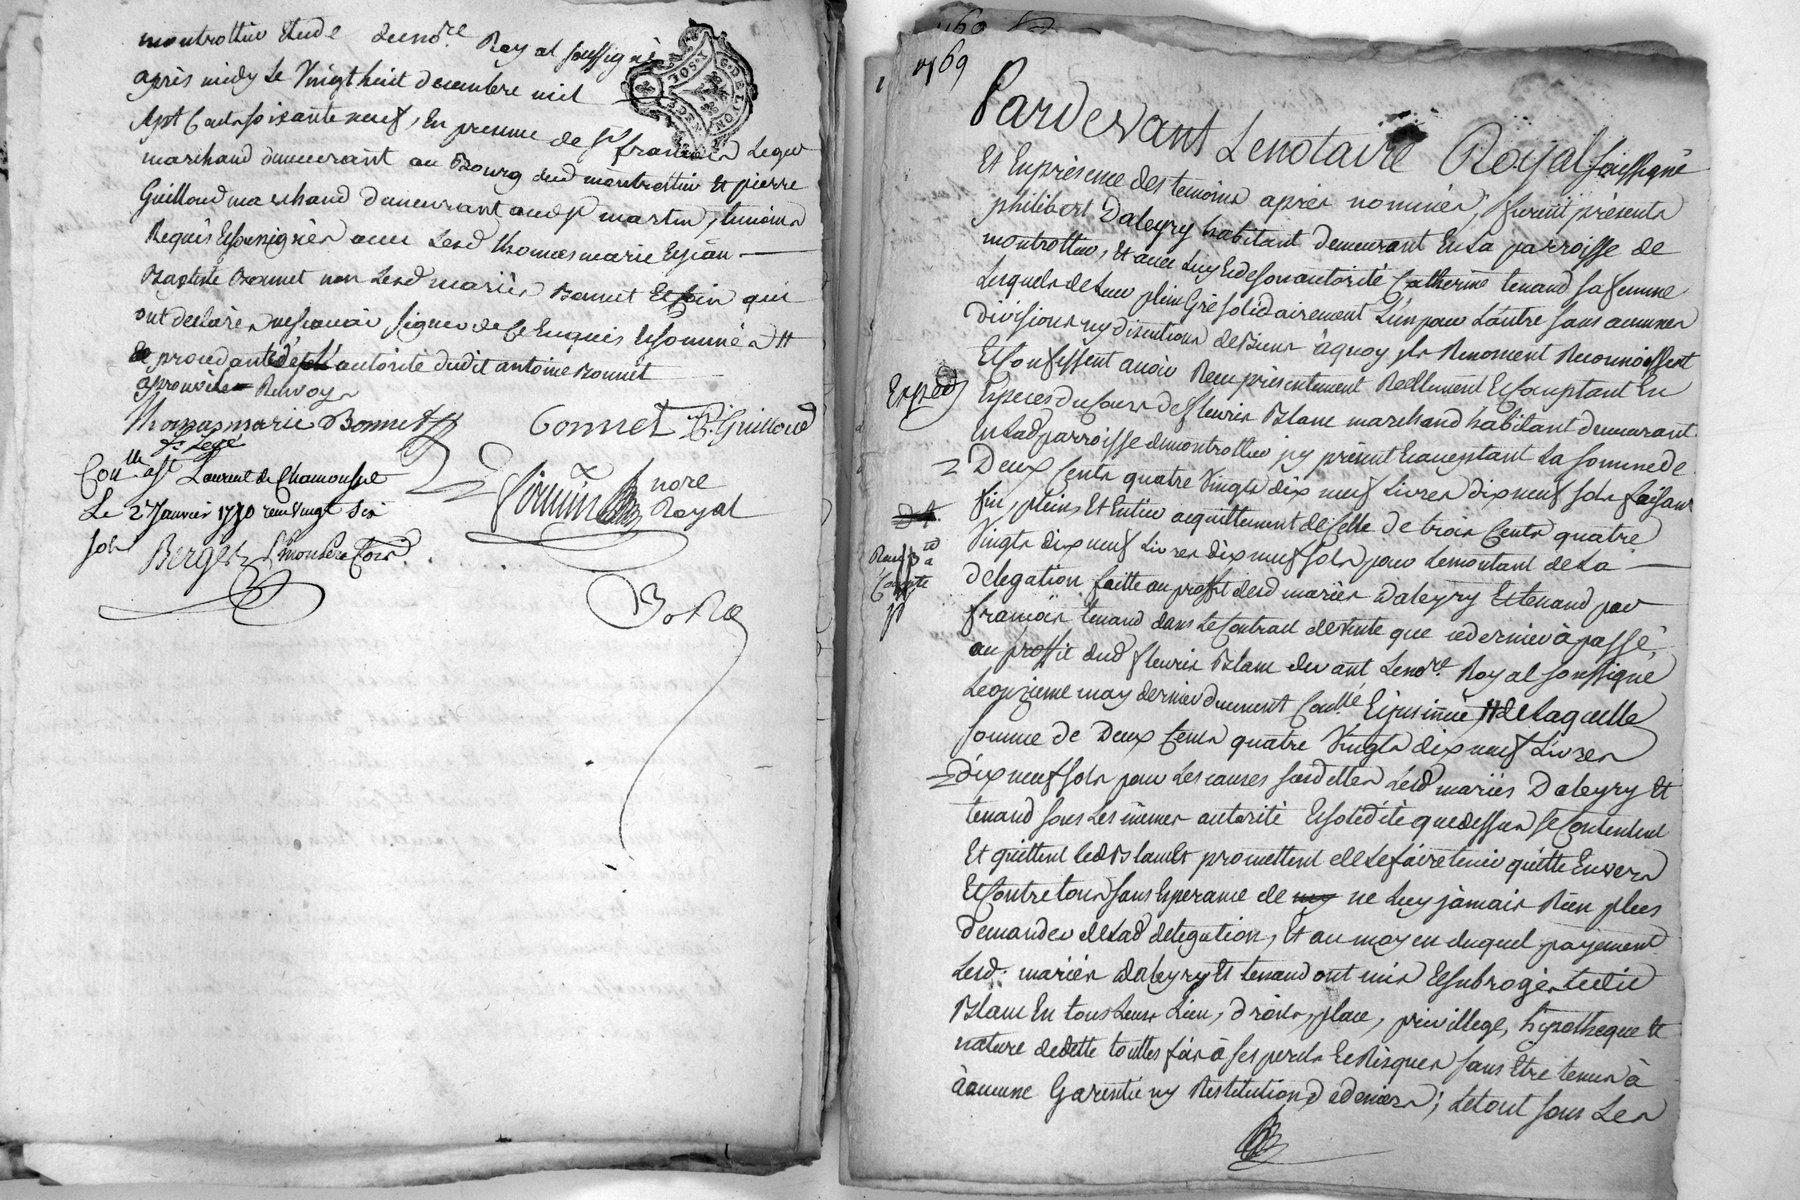 montrottier Etude dudnore Royal soussigné
après midy Le Vingt huit decembre mil
sept Cents soixante neuf, En presence de sr francois Legue
marchand demeurant au Bourg dud montrottier Et pierre
Guilloud marchand demeurant aud st martin, temoins
Requis Et soussignés avec Lesd Thomas marie Et jean
Baptiste Bonnet non Lesd mariés Bonnet Et qui
ont declaré ne scavoir signer de ce Enquis Et sommé a H
procedante de L'autorité dudit antoine Bonnet
aprouvé Renvoy
Thomas marie Bonnet Bonnet P. Guilloud
Fs Legé
Conllé a st Laurent de Chamousset
Le 2 Janvier 1770 reçu vingt six
sols Berger
nore
Royal
G. DE LYON
1769
Pardevant Lenotaire Royal soussigné
Et En présence des temoins après nommés, furent présents
philibert Daleyry habitant demeurant En La parroisse de
montrottier, Et avec Luy Et de son autorité Catherine tenand sa femme
Lesquels de Leur plein Gré solidairement L'un pour L'autre sans aucunes
Divisions ny discutions de Biens à quoy ils Renoncent Reconnoissent
Et Confessent avoir Reçu présentement Reellement Et Comptant En
Exped
Especes du Cours de fleurie Blanc marchand habitant demeurant
En Lad parroisse de montrottier jcy présent Et acceptant La somme de
Deux Cents quatre Vingts dix neuf Livres dix neuf sols faisant
fin, pleins Et Entier acquittement de Celle de trois Cents quatre
Vingts dix neuf Livres dix neuf sols pour Le montant de La
delegation faitte au proffit desd mariés Daleyry Et tenand par
francois tenand dans Le Contract de vente que ce dernier à passé
au proffit dud fleurie Blanc devant Lenore Royal soussigné
Le onzieme may dernier duement Conllé Et jnsinüé H de Laquelle
somme de Deux Cents quatre Vingts dix neuf Livres
dix neuf sols pour Les causes susdittes Lesd mariés Daleyry Et
tenand sous Les mêmes autorité Et solidité que dessus se Contentent
Et quittent Led Blanc Et promettent de Le faire tenir quitte Envers
Et Contre tous sans Esperance de ne Luy jamais Rien plus
demander de Lad delegation, Et au moyen duquel payement
Lesd. mariés daleyry Et tenand ont mis Et subrogés Ledit
Blanc En tous Leurs Lieu, droits, place, privillege, hypotheque Et
nature de dette touttes fois à ses perils Et Risques sans Etre tenus à
aucune Garentie ny Restitution de deniers; Le tout sous Les